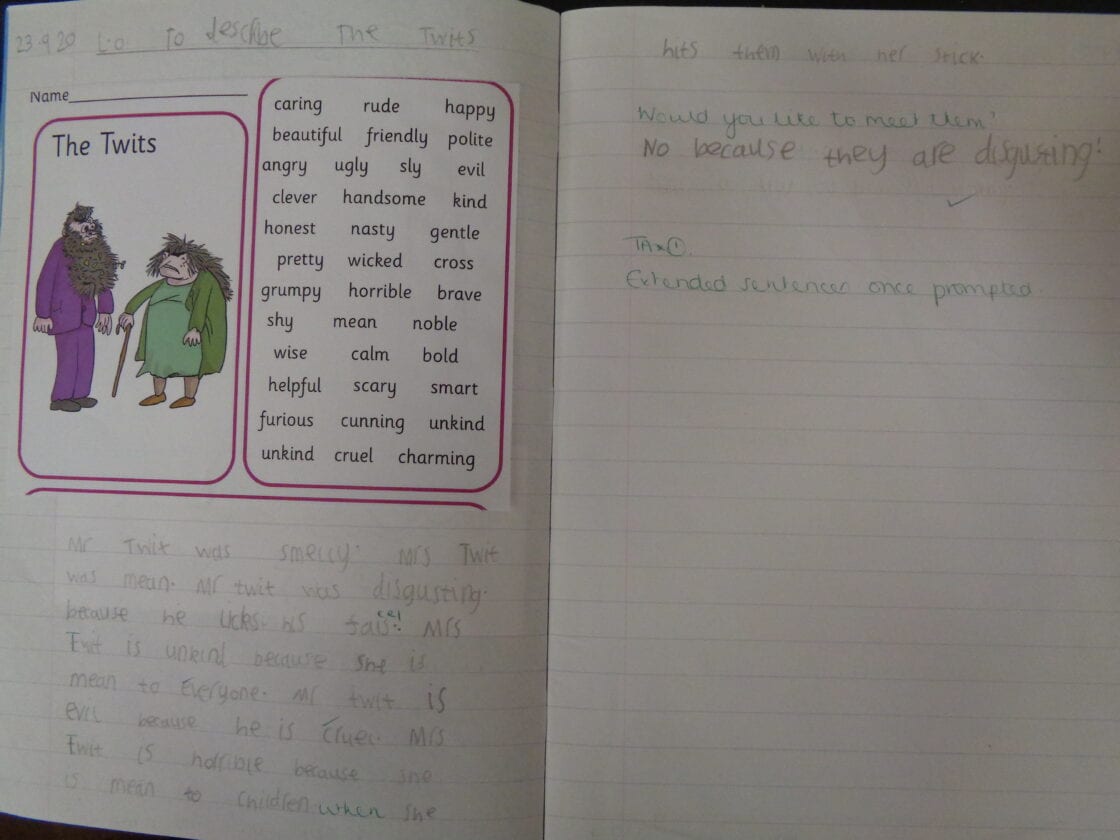 23.9.20 L.o. To describe The Twits
Name
The Twits
caring rude happy
beautiful friendly polite
angry ugly sly evil
clever handsome kind
honest nasty gentle
pretty wicked cross
grumpy horrible brave
shy mean noble
wise calm bold
helpful scary smart
furious cunning unkind
unkind cruel charming
Mr Twit was smelly. Mrs Twit
was mean. Mr twit was disgusting.
because he licks. his Mrs
Twit is unkind because she is
mean to Everyone. Mr twit is
evil because he is cruel. Mrs
Twit is horrible because she
is mean to children when she
hits them with her stick.
Would you like to meet them?
No because they are disgusting!
TA x 1.
Extended sentences once prompted.